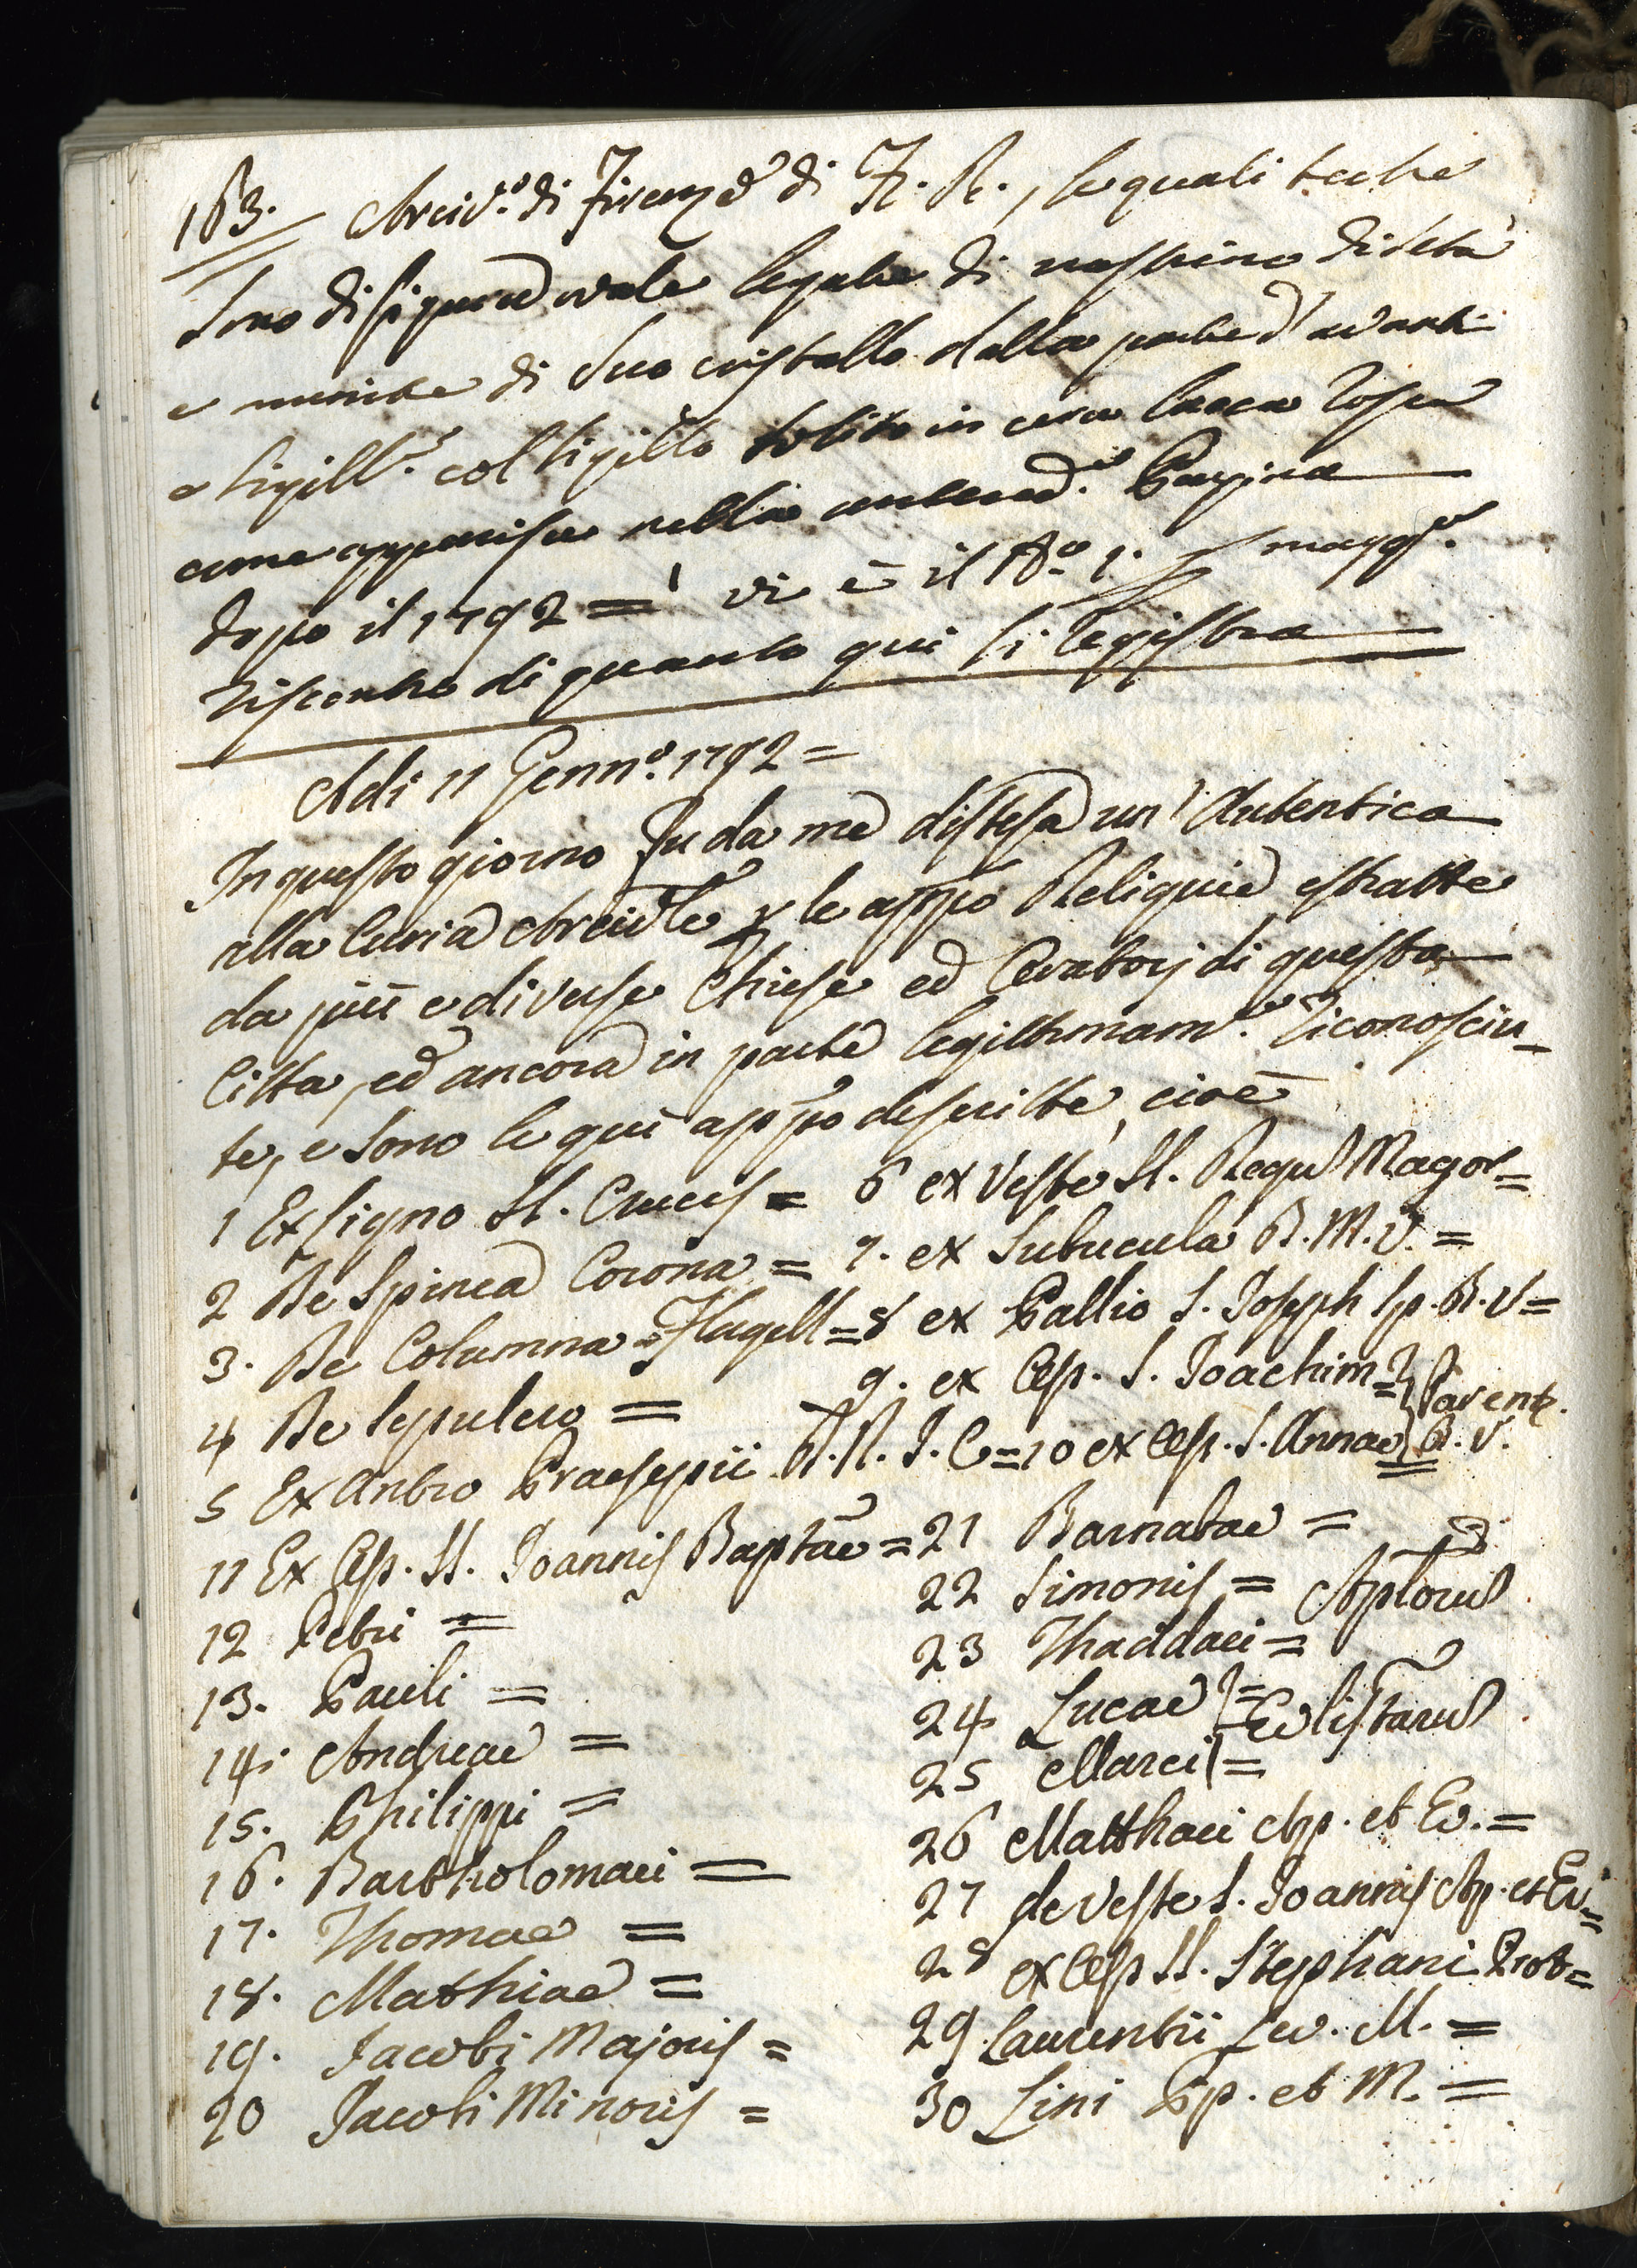 163. Arciv.o di Firenze di F. R., le quali teche
sono di figura ovale legate di nastrino di seta
e munite di suo cristallo dalla parte d'avanti
e sigill.e col sigillo solito in cera lacca rossa
come apparisce nella anteced.e Pagina
dopo il 1792 = vi è il N.o 1. p maggr.
riscontro di quanto qui si registra
Adi 11 Genn.o 1792 =
In questo giorno fu da me distesa un' Autentica
alla Curia Arcivle p le appo Reliquie estratte
da più e diverse Chiese ed Oratorj di questa
Citta, ed ancora in parte legittimam.e riconosciu-
te, e sono le quì appo descritte, cioè
1 Ex signo SS. Crucis = 6 ex Veste SS. Regu Magor=
2 De Spinea Corona = 7. ex Subucula B. M. V. =
3. De Columna Flagell = 8 ex Pallio S. Joseph Sp. B. V=
4 De Sepulcro = 9. ex Ossp. S. Joachim = Parent.
5 Ex Antro Praesepii D. N. J. C = 10 ex Ossp. S. Annae B. V.
11 Ex Ossp. SS. Joannis Baptae = 21 Barnabae =
12 Petri = 22 Simonis = Aploru
13. Pauli = 23 Thaddaei =
14. Andreae = 24 Lucae = Evlistaru
15. Philippi = 25 Marci =
16. Bartholomaei = 26 Matthaei Ap. et Ev. =
17. Thomae = 27 de Veste S. Joannis Ap. et Ev. =
18. Mathiae = 28 ex Ossp SS. Stephani Prot=
19. Jacobi Majoris = 29 Laurentii Lev. M. =
20 Jacobi Minoris = 30 Lini Pp. et M. =